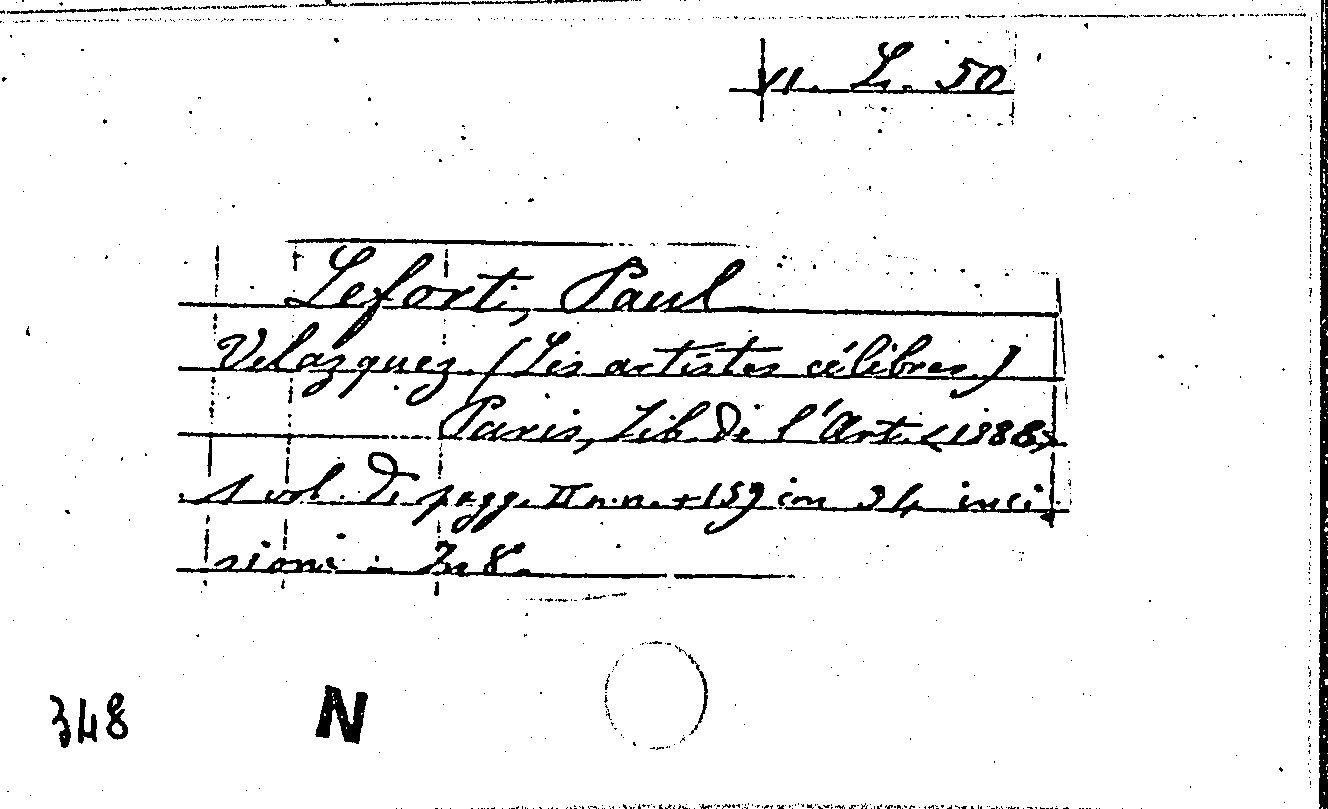 VI. L. 50
Lefort, Paul
Velazquez (Les artistes célèbres)
Paris, Lib. de l'Art. <1888>
1 vol. di pagg. II n.n. + 159 con 34 inci-
sioni - In 8.
348 N